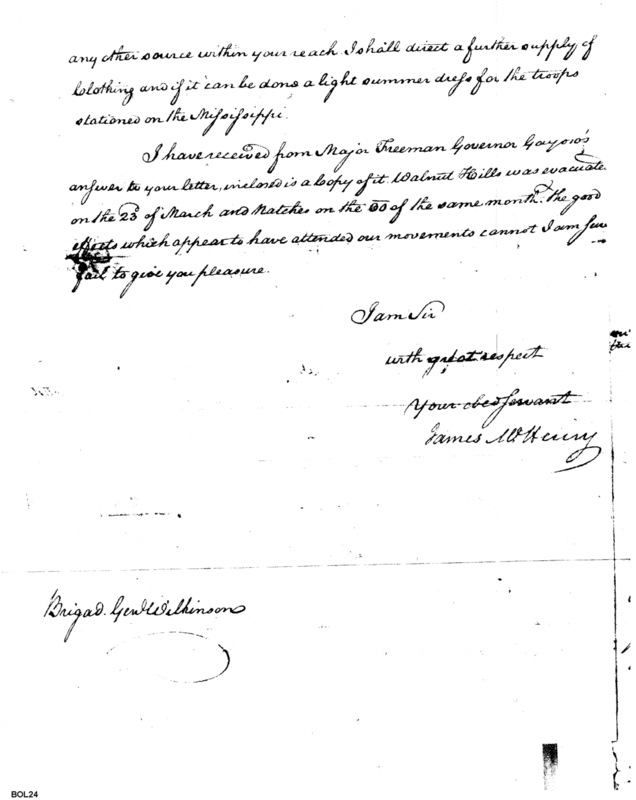 any other source within your reach. I shall direct a further supply of
Clothing and if it can be done a light summer dress for the troops
stationed on the Mississippi.
I have received from Major Freeman Governor Gayoso's
answer to your letter, inclosed is a Copy of it. Walnut Hills was evacuate
on the 23d of March and Natches on the of the same month. The good
effects which appear to have attended our movements cannot I am
fail to give you pleasure.
I am Sir
with great respect
Your obed Servant
James McHenry
Brigad. Genl Wilkinson
BOL24